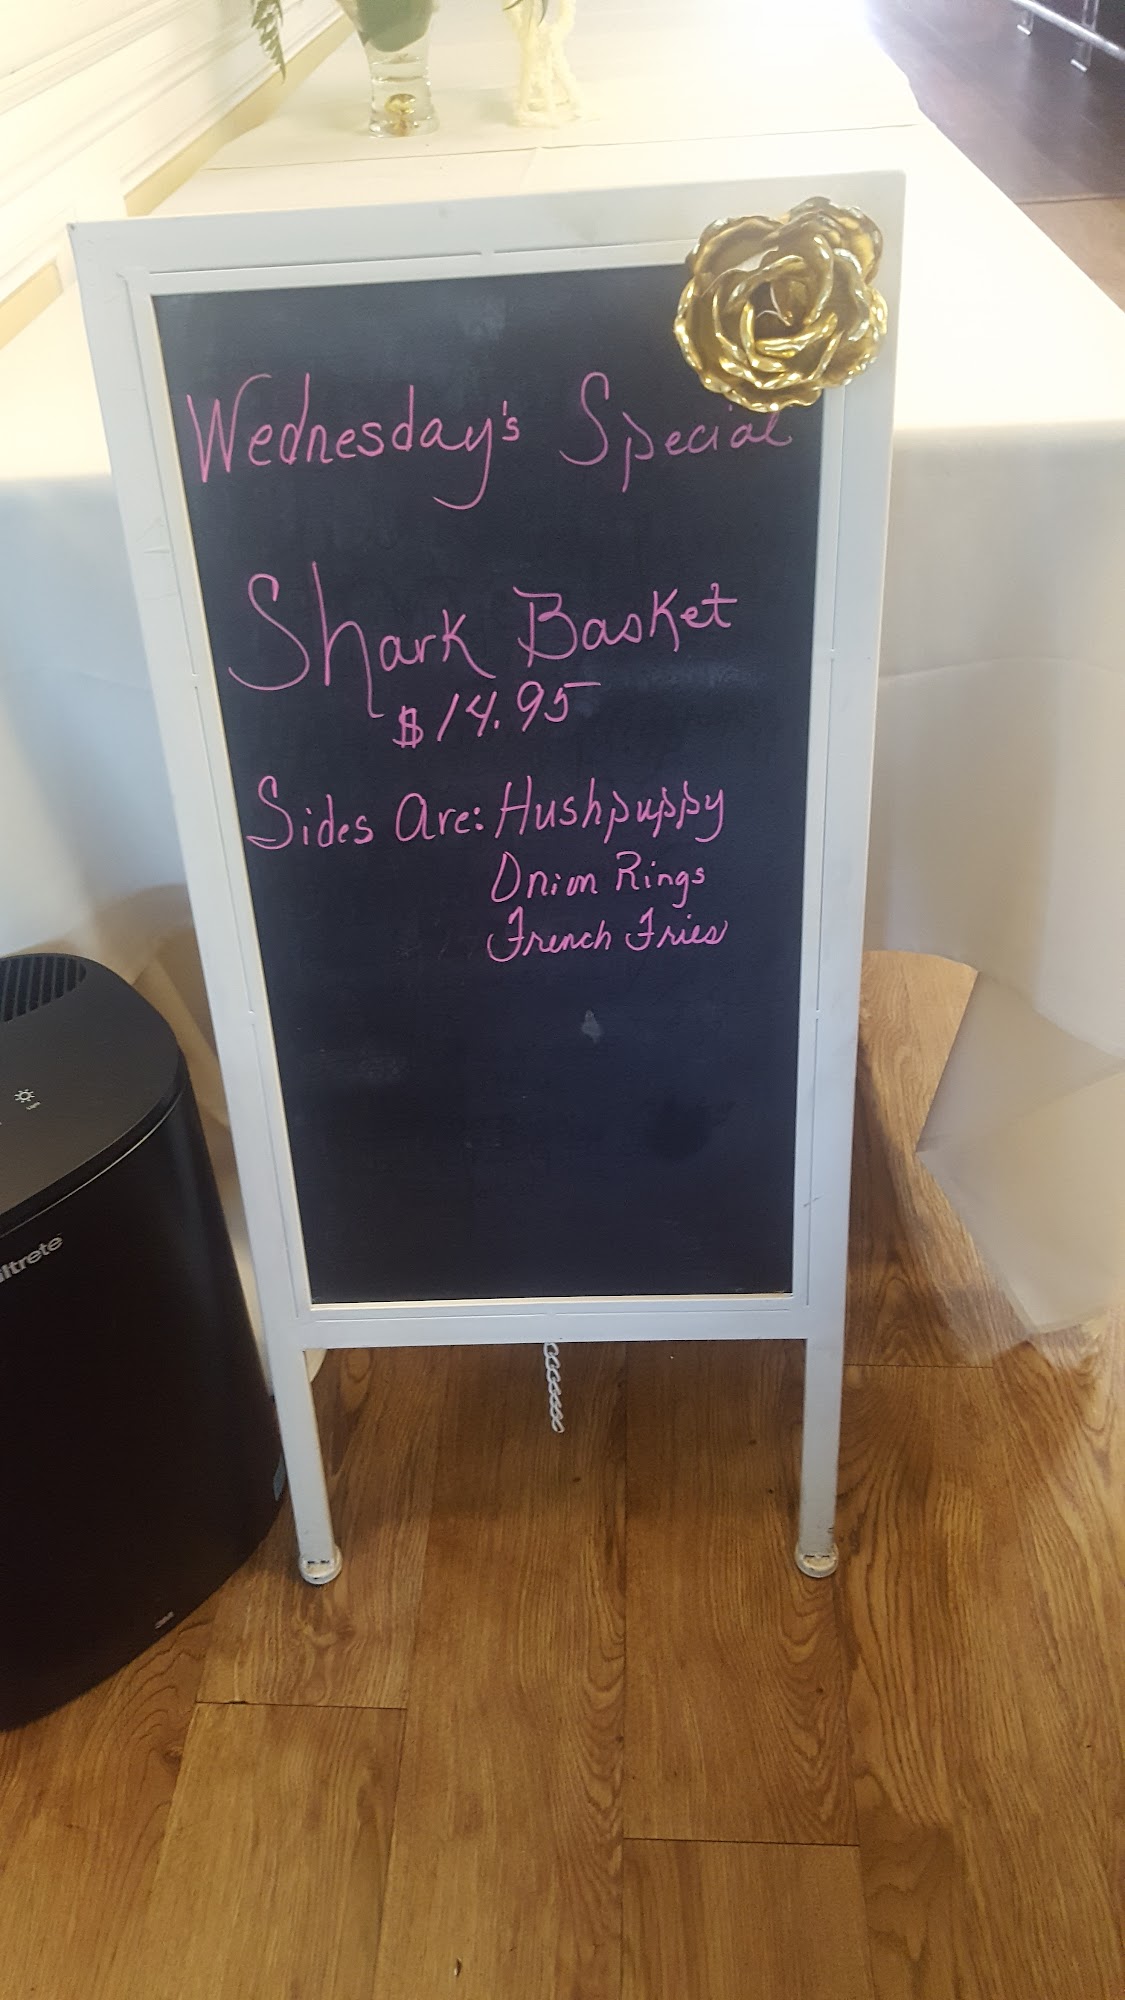 Wednesday's Special
Shark Basket
$14.95
Sides Are: Hushpuppy
Onion Rings
French Fries
Light
iltrete
3M